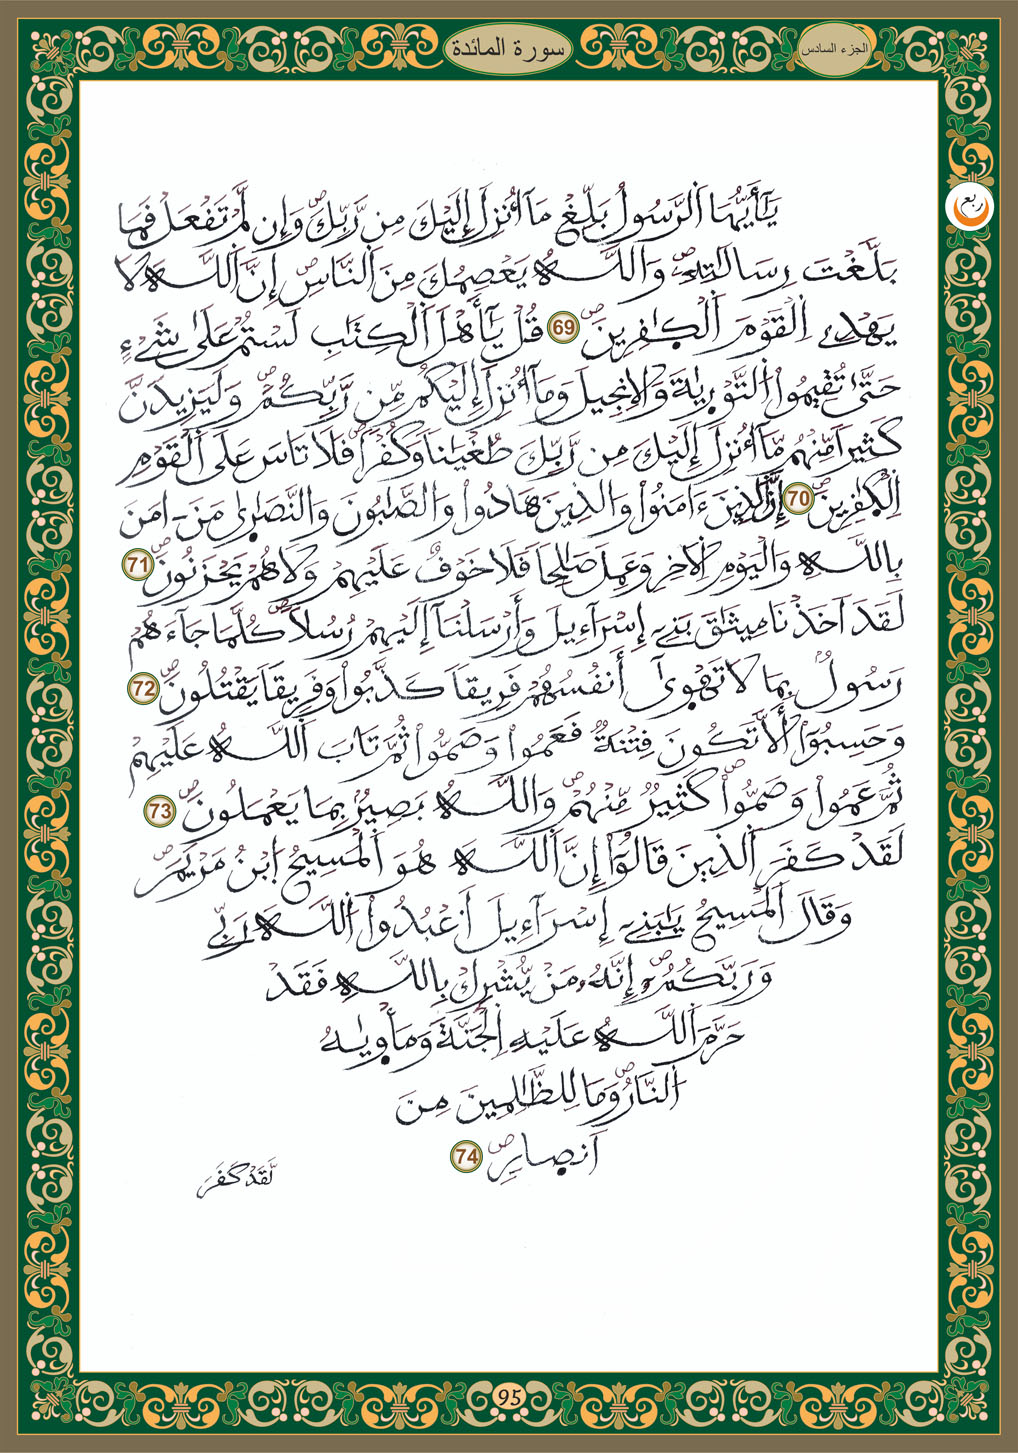 سورة المائدة
الجزء السادس
ربع
يَٰٓأَيُّهَا اَ۬لرَّسُولُ بَلِّغْ مَآ أُنزِلَ إِلَيْكَ مِن رَّبِّكَۖ وَإِن لَّمْ تَفْعَلْ فَمَا
بَلَّغْتَ رِسَالَتِهِۖۦ وَاللَّهُ يَعْصِمُكَ مِنَ اَ۬لنَّاسِۖ إِنَّ اَ۬للَّهَ لَا
يَهْدِے اِ۬لْقَوْمَ اَ۬لْكٰفِرِينَۖ 69 قُلْ يَٰٓأَهْلَ اَ۬لْكِتَٰبِ لَسْتُمْ عَلَىٰ شَےْءٍ
حَتَّىٰ تُقِيمُواْ اُ۬لتَّوْر۪يٰةَ وَالِانجِيلَ وَمَآ أُنزِلَ إِلَيْكُم مِّن رَّبِّكُمْۖ وَلَيَزِيدَنَّ
كَثِيراٗ مِّنْهُم مَّآ أُنزِلَ إِلَيْكَ مِن رَّبِّكَ طُغْيَٰناٗ وَكُفْراٗۖ فَلَا تَاسَ عَلَى اَ۬لْقَوْمِ
اِ۬لْكٰفِرِينَۖ 70 إِنَّ اَ۬لذِينَ ءَامَنُواْ وَالذِينَ هَادُواْ وَالصَّٰبُونَ وَالنَّصَٰر۪ىٰ مَنَ ـ امَنَ
بِاللَّهِ وَالْيَوْمِ اِ۬لَاخِرِ وَعَمِلَ صَٰلِحاٗ فَلَا خَوْفٌ عَلَيْهِمْ وَلَا هُمْ يَحْزَنُونَۖ 71
لَقَدَ اَخَذْنَا مِيثَٰقَ بَنِےٓ إِسْرَآءِيلَ وَأَرْسَلْنَآ إِلَيْهِمْ رُسُلاٗۖ كُلَّمَا جَآءَهُمْ
رَسُولُۢ بِمَا لَا تَهْو۪ىٰٓ أَنفُسُهُمْ فَرِيقاٗ كَذَّبُواْ وَفَرِيقاٗ يَقْتُلُونَۖ 72
وَحَسِبُوٓاْ أَلَّا تَكُونَ فِتْنَةٌ فَعَمُواْ وَصَمُّواْ ثُمَّ تَابَ اَ۬للَّهُ عَلَيْهِمْ
ثُمَّ عَمُواْ وَصَمُّواْۖ كَثِيرٌ مِّنْهُمْۖ وَاللَّهُ بَصِيرُۢ بِمَا يَعْمَلُونَۖ 73
لَقَدْ كَفَرَ اَ۬لذِينَ قَالُوٓاْ إِنَّ اَ۬للَّهَ هُوَ اَ۬لْمَسِيحُ اُ۪بْنُ مَرْيَمَۖ
وَقَالَ اَ۬لْمَسِيحُ يَٰبَنِےٓ إِسْرَآءِيلَ اَ۟عْبُدُواْ اُ۬للَّهَ رَبِّے
وَرَبَّكُمُۥٓۖ إِنَّهُۥ مَنْ يُّشْرِكْ بِاللَّهِ فَقَدْ
حَرَّمَ اَ۬للَّهُ عَلَيْهِ اِ۬لْجَنَّةَ وَمَأْو۪يٰهُ
اُ۬لنَّارُۖ وَمَا لِلظَّٰلِمِينَ مِنَ
اَنصارٍۖ 74
لَّقَدْ كَفَرَ
95